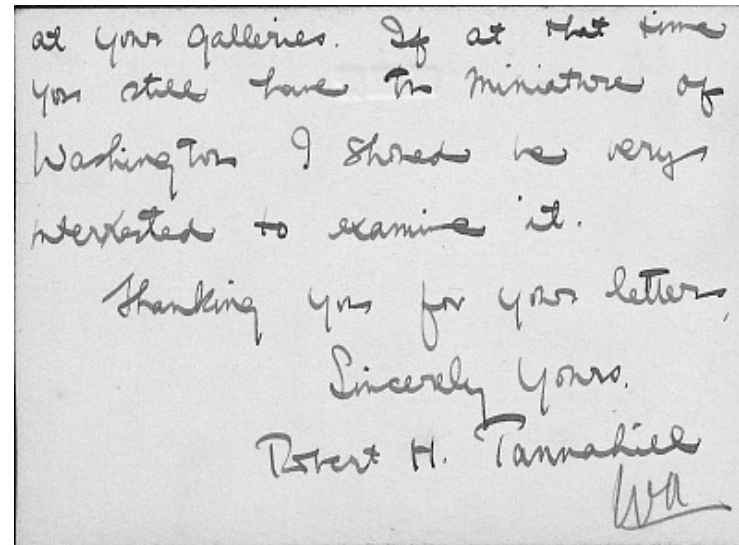 at your galleries. If at that time
you still have the miniature of
Washington I should be very
interested to examine it.
Thanking you for your letters,
Sincerely Yours.
Robert H. Tannahill